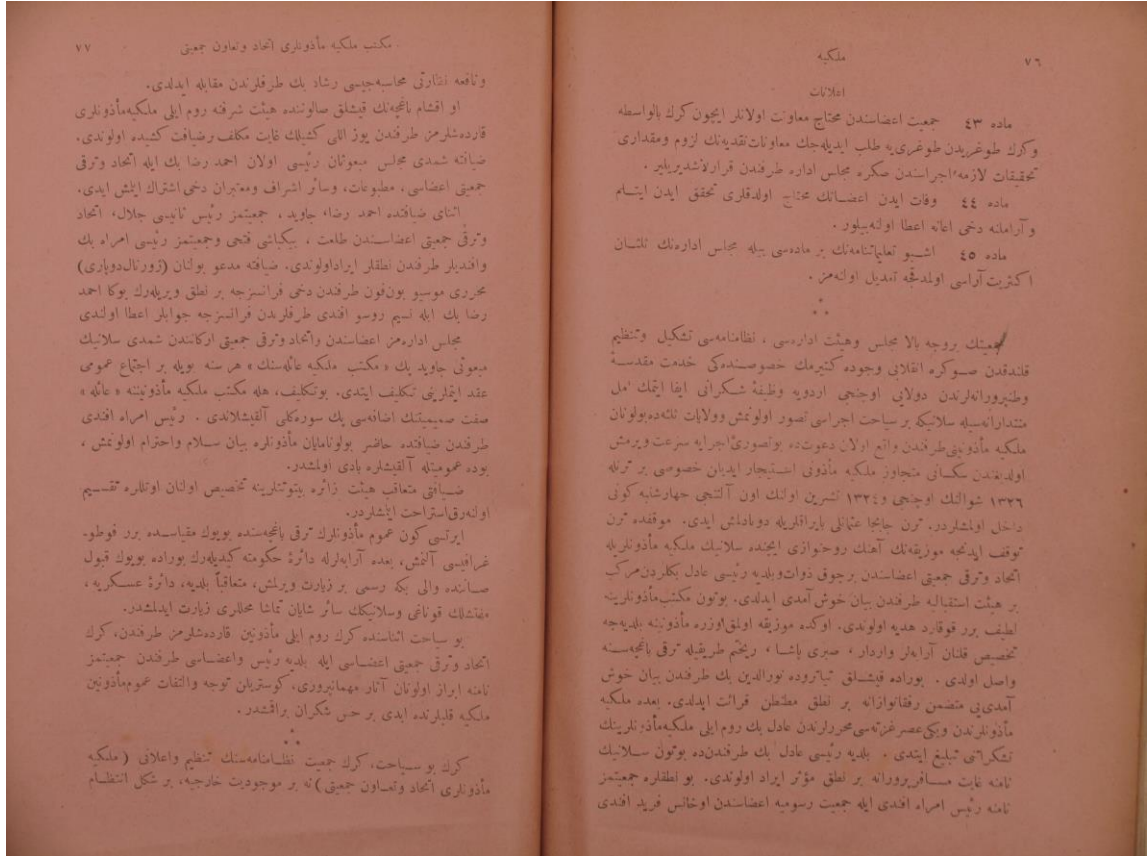 ٧٦
ملكیه
اعلانات
ماده ٤٣ جمعیت اعضاسندن محتاج معاونت اولانلر ایچون كرك بالواسطه
وكرك طوغریدن طوغری‌یه طلب ایدیله‌جك معاونات نقدیه‌نك لزوم ومقداری
تحقیقات لازمه اجراسندن صكره مجلس اداره طرفندن قرارلاشدیریلیر .
ماده ٤٤ وفات ایدن اعضانك محتاج اولدقلری تحقق ایدن ایتام
و آرامله دخی اعانه اعطا اولنه‌بیلور .
ماده ٤٥ اشبو تعلیماتنامه‌نك بر ماده‌سی بیله مجلس اداره‌نك ثلثان
اكثریت آراسی اولمدقجه تعدیل اولنه‌مز .
* *
جمعیتك بروجه بالا مجلس وهیئت اداره‌سی ، نظامنامه‌سی تشكیل وتنظیم
قلندقدن صوكره انقلابی وجوده كتیرمك خصوصنده‌كی خدمت مقدسهٔ
وطنپرورانه‌لرندن دولایی اوچنجی اردویه وظیفهٔ شكرانی ایفا ایتمك امل
متدارانه‌سیله سلانیكه بر سیاحت اجراسی تصور اولونمش وولایات ثلثه‌ده‌بولونان
ملكیه مأذونینی طرفندن واقع اولان دعوت‌ده بوتصوری اجرایه سرعت ویرمش
اولدیغندن سكسانی متجاوز ملكیه مأذونی استیجار ایدیلن خصوصی بر ترنله
١٣٢٦ شوالنك اوچنجی و١٣٢٤ تشرین اولنك اون آلتنجی چهارشنبه كونی
داخل اولمشلردر. ترن جابجا عثمانلی بایراقلریله دوناداش ایدی. موقفده ترن
توقف ایدنجه موزیقه‌نك آهنك روحنوازی ایچنده سلانیك ملكیه مأذونلریله
اتحاد وترقی جمعیتی اعضاسندن برچوق ذوات وبلدیه رئیسی عادل بكلردن مركب
بر هیئت استقبالیه طرفندن بیان خوش آمدی ایدلدی. بوتون مكتب مأذونلرینه
لطیف برر قوقارد هدیه اولوندی. اوكده موزیقه اولمق اوزره مأذونینه بلدیه‌جه
تخصیص قلنان آرابه‌لر واردار ، صبری پاشا ، ریختم طریقیله ترقی باغچه‌سنه
واصل اولدی . بوراده قیشلق تیاتروده نورالدین بك طرفندن بیان خوش
آمدی‌یی متضمن رفقانوازانه بر نطق مطنطن قرائت ایدلدی. بعده ملكیه
مأذونلرندن ویكی عصر غزته‌سی محررلرندن عادل بك روم ایلی ملكیه‌مأذونلرینك
تشكراتنی تبلیغ ایتدی . بلدیه رئیسی عادل بك طرفندن‌ده بوتون سلانیك
نامنه غایت مسافرپرورانه بر نطق مؤثر ایراد اولوندی. بو نطقلره جمعیتمز
نامنه رئیس امراه افندی ایله جمعیت رسومیه اعضاسندن اوخانس فرید افندی
مكتب ملكیه مأذونلری اتحاد وتعاون جمعیتی
٧٧
ونافعه نظارتی محاسبه‌جیسی رشاد بك طرفلرندن مقابله ایدلدی.
او اقشام باغچه‌نك قیشلق صالوننده هیئت شرفنه روم ایلی ملكیه‌مأذونلری
قارده‌شلرمز طرفندن یوز اللی كشیلك غایت مكلف بر ضیافت كشیده اولوندی.
ضیافته شمدی مجلس مبعوثان رئیسی اولان احمد رضا بك ایله اتحاد وترقی
جمعیتی اعضاسی ، مطبوعات، وسائر اشراف ومعتبران دخی اشتراك ایتمش ایدی.
اثنای ضیافتده احمد رضا، جاوید ، جمعیتمز رئیس ثانیسی جلال، اتحاد
وترقی جمعیتی اعضاسندن طلعت ، بیكباشی فتحی وجمعیتمز رئیسی امراه بك
وافندیلر طرفندن نطقلر ایراد اولوندی. ضیافته مدعو بولنان (ژورنال‌دوپاری)
محرری موسیو بون‌فون طرفندن دخی فرانسزجه بر نطق ویریله‌رك بوكا احمد
رضا بك ایله نسیم روسو افندی طرفلرندن فرانسزجه جوابلر اعطا اولندی
مجلس اداره‌مز اعضاسندن واتحاد وترقی جمعیتی اركانندن شمدی سلانیك
مبعوثی جاوید بك « مكتب ملكیه عائله‌سنك » هر سنه بویله بر اجتماع عمومی
عقد ایتملرینی تكلیف ایتدی. بوتكلیف، هله مكتب ملكیه مأذونیتنه « عائله »
صفت صمیمیتنك اضافه‌سی پك سوره‌كلی آلقیشلاندی . رئیس امراه افندی
طرفندن ضیافتده حاضر بولونامایان مأذونلره بیان سلام واحترام اولونمش ،
بوده عمومیتله آلقیشلره بادی اولمشدر.
ضیافتی متعاقب هیئت زائره بیتوتتلرینه تخصیص اولنان اوتللره تقسیم
اولنه‌رق استراحت ایتمشلردر.
ایرتسی كون عموم مأذونلرك ترقی باغچه‌سنده بویوك مقیاسده برر فوطو-
غرافیسی آلنمش، بعده آرابه‌لرله دائرهٔ حكومته كیدیله‌رك بوراده بویوك قبول
صالننده والی بكه رسمی بر زیارت ویرلمش، متعاقباً بلدیه، دائرهٔ عسكریه ،
مفتشلك قوناغی وسلانیكك سائر شایان تماشا محللری زیارت ایدلمشدر.
بو سیاحت اثناسنده كرك روم ایلی مأذونین قارده‌شلرمز طرفندن، كرك
اتحاد وترقی جمعیتی اعضاسی ایله بلدیه رئیس واعضاسی طرفندن جمعیتمز
نامنه ابراز اولونان آثار مهمانپروری، كوستریلن توجه والتفات عموم‌مأذونین
ملكیه قلبلرنده ابدی بر حس شكران براقمشدر.
* *
كرك بو سیاحت، كرك جمعیت نظامنامه‌سنك تنظیم واعلانی ( ملكیه
مأذونلری اتحاد وتعاون جمعیتی ) نه بر موجودیت خارجیه، بر شكل انتظام